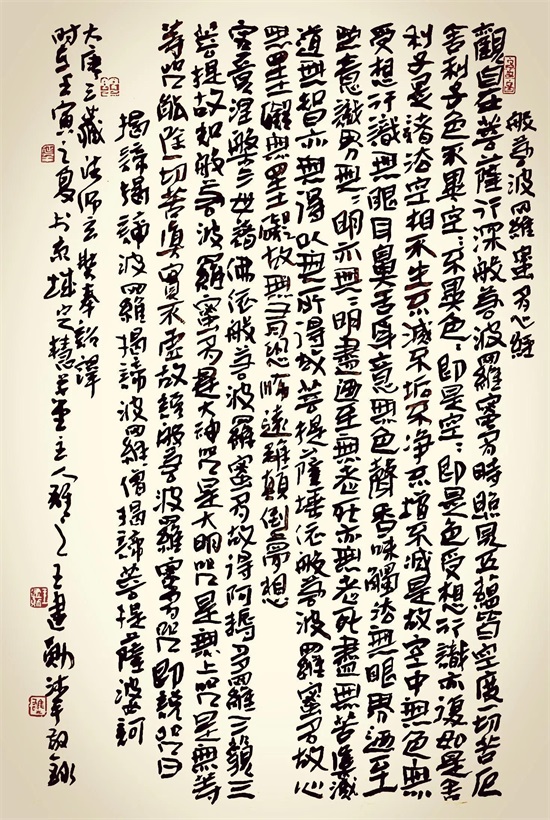 般若波羅蜜多心經
觀自在菩薩行深般若波羅蜜多時照見五蘊皆空度一切苦厄
舍利子色不異空〻不異色〻即是空〻即是色受想行識亦復如是舍
利子是諸法空相不生不滅不垢不净不增不減是故空中無色無
受想行識無眼耳鼻舌身意無色聲香味觸法無眼界迺至
無意識界無〻明亦無〻明盡迺至無老死亦無老死盡無苦集滅
道無智亦無得以無所得故菩提薩埵依般若波羅蜜多故心
無罣礙無罣礙故無有恐怖遠離顛倒夢想
究竟涅槃三世諸佛依般若波羅蜜多故得阿耨多羅三藐三
菩提故知般若波羅蜜多是大神咒是大明咒是無上咒是無等
等咒能除一切苦真實不虛故說般若波羅蜜多咒即說咒曰
揭諦揭諦波羅揭諦波羅僧揭諦菩提薩婆訶
大唐三藏法師玄奘奉詔譯
時在壬寅之夏於京城定慧堂主人王建勳沐手敬錄